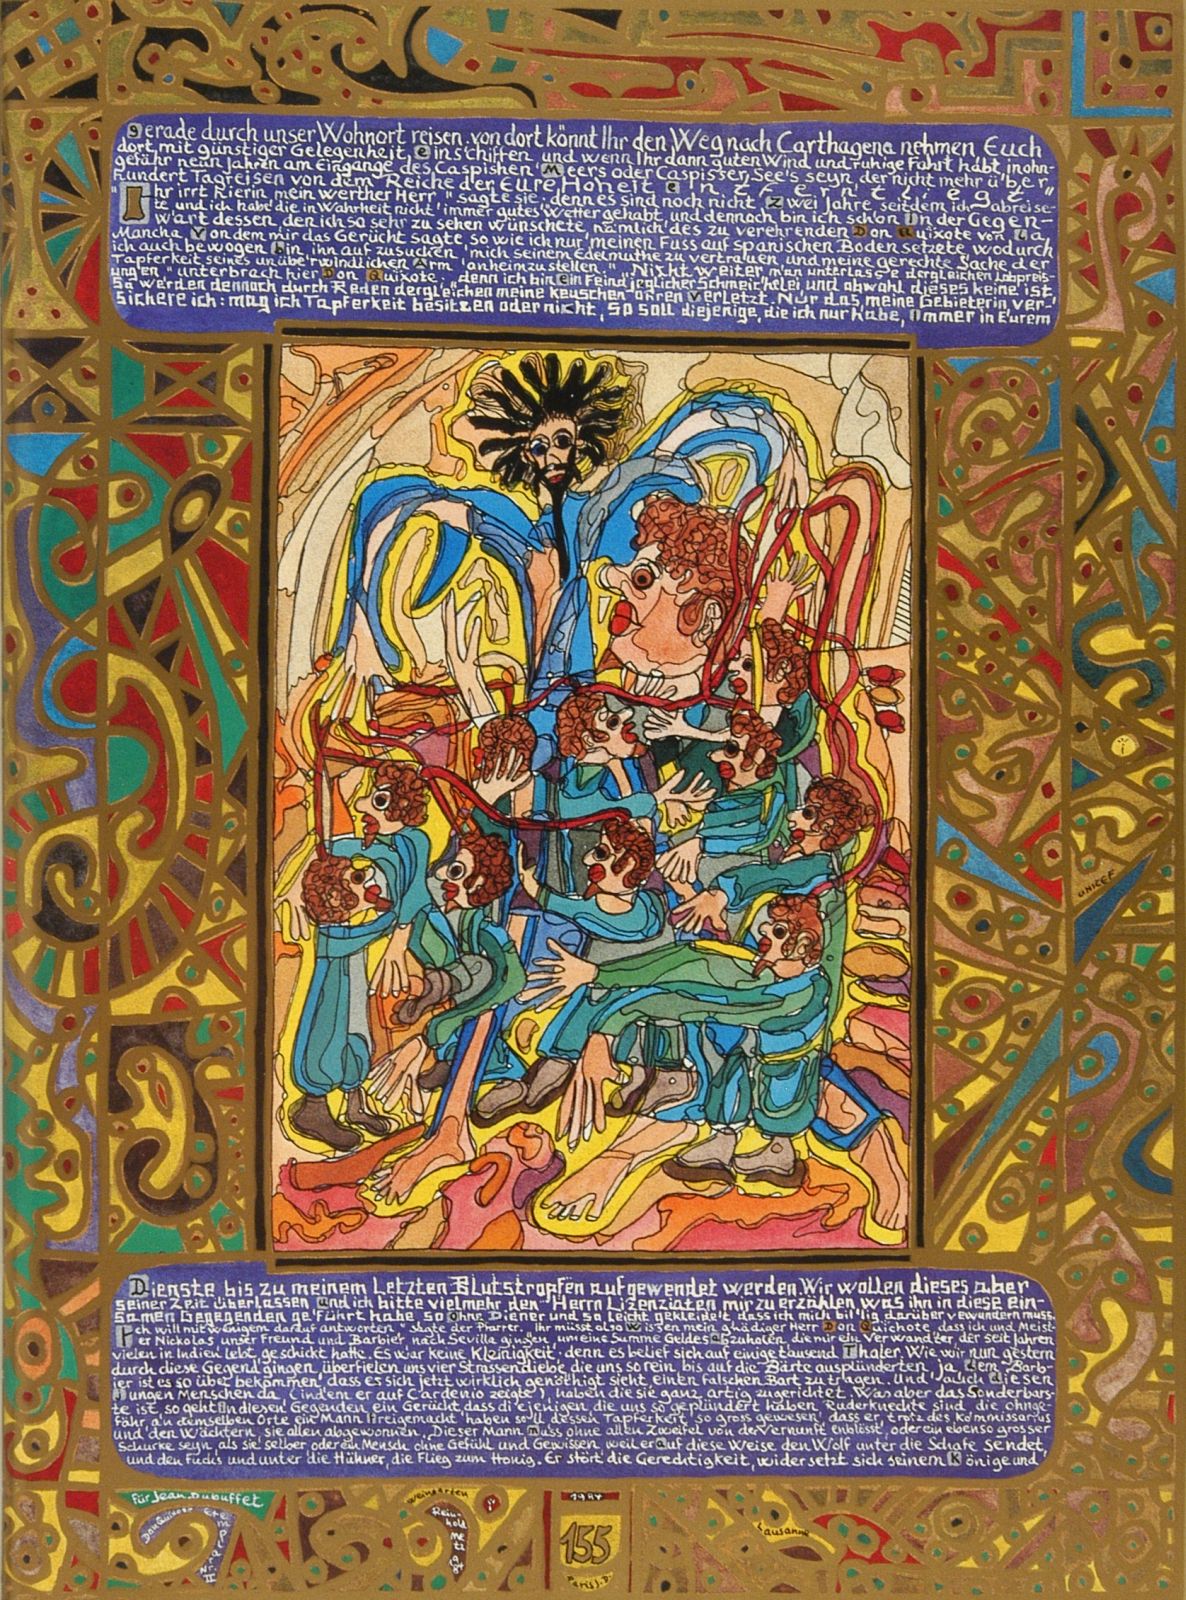 gerade durch unser Wohnort reisen. von dort könnt Ihr den Weg nach Carthagena nehmen Euch
dort, mit günstiger Gelegenheit, einschiffen und wenn Ihr dann guten Wind und ruhige Fahrt habt in ohn-
gefähr neun Jahren am Eingange des Caspishen Meers oder Caspisser See's seyn der nicht mehr über
hundert Tagreisen von dem Reiche der Eure Hoheit entfernt liegt
"Ihr irrt hierin mein werther Herr" sagte sie, denn es sind noch nicht zwei Jahre seitdem ich abreise-
te, und ich habe die in Wahrheit nicht immer gutes Wetter gehabt, und dennoch bin ich schon in der Gegen-
wart dessen, den ich so sehr zu sehen wünschete, nämlich des zu verehrenden Don Quixote von La
Mancha, von dem mir das Gerücht sagte, so wie ich nur meinen Fuss auf spanischen Boden setzete wodurch
ich auch bewogen bin, ihn aufzusuchen, mich seinem Edelmuthe zu vertrauen, und meine gerechte Sache der
Tapferkeit seines unüberwindlichen Arm anheimzustellen." "Nicht weiter, man unterlasse dergleichen Lobpreis-
ungen" unterbrach hier Don Quixote, denn ich bin ein Feind jeglicher Schmeichelei, und obwahl dieses keine ist
so werden dennoch durch Reden dergleichen meine keuschen ohren verletzt. Nur das, meine Gebieterin ver-
sichere ich: mag ich Tapferkeit besitzen oder nicht, so soll diejenige, die ich nur habe, immer in Eurem
UNICEF
Dienste bis zu meinem Letzten Blutstropfen aufgewendet werden. Wir wollen dieses aber
seiner Zeit überlassen und ich bitte vielmehr den Herrn Lizenziaten mir zu erzählen was ihn in diese ein-
samen Gegegenden geführt habe, so ohne Diener und so leicht gekleidet, dass ich mich billig darüber verwundern muss.
Ich will mit wenigem darauf antworten, sagte der Pfarrer, Ihr müsst also wissen mein gnädiger Herr Don Quichote, dass ich und Meist-
er Nickolas unser Freund und Barbier nach Sevilla gingen um eine Summe Geldes abzuholen die mir ein Verwandter der seit Jahren
vielen in Indien Lebt geschickt hatte. Es war keine Kleinigkeit denn es belief sich auf einige tausend Thaler. Wie wir nun gestern
durch diese Gegend gingen, überfielen uns vier Strassendiebe die uns so rein bis auf die Bärte ausplünderten ja dem Barb-
ier ist es so über bekommen, dass es sich jetzt wirklich genöthigt sieht einen falschen Bart zu tragen und auch diesen
jungen Menschen da (indem er auf Cardenio zeigte), haben die sie ganz artig zugerichtet. Was aber das Sonderbars-
te ist, so geht in diesen Gegenden ein Gerücht, dass diejenigen, die uns so geplündert haben Ruderknechte sind, die ohnge-
fähr an demselben Orte ein Mann freigemacht haben soll dessen Tapferkeit so gross gewesen, dass er, trotz des Kommissarius
und den Wächtern, sie allen abgewonnen. Dieser Mann muss ohne allen Zweifel von der Vernunft enblösst, oder ein ebenso grosser
Schurke seyn, als sie selber oder ein Mensch ohne Gefühl und Gewissen weil er auf diese Weise den Wolf unter die Schafe sendet,
und den Fuchs und unter die Hühner, die Flieg zum Honig. Er stört die Gerechtigkeit, widersetzt sich seinem Könige und
Für Jean Dubuffet
Don Quixote
Nr. II
weingarten
Reinhold Metz
1984
155
Paris
Lausanne